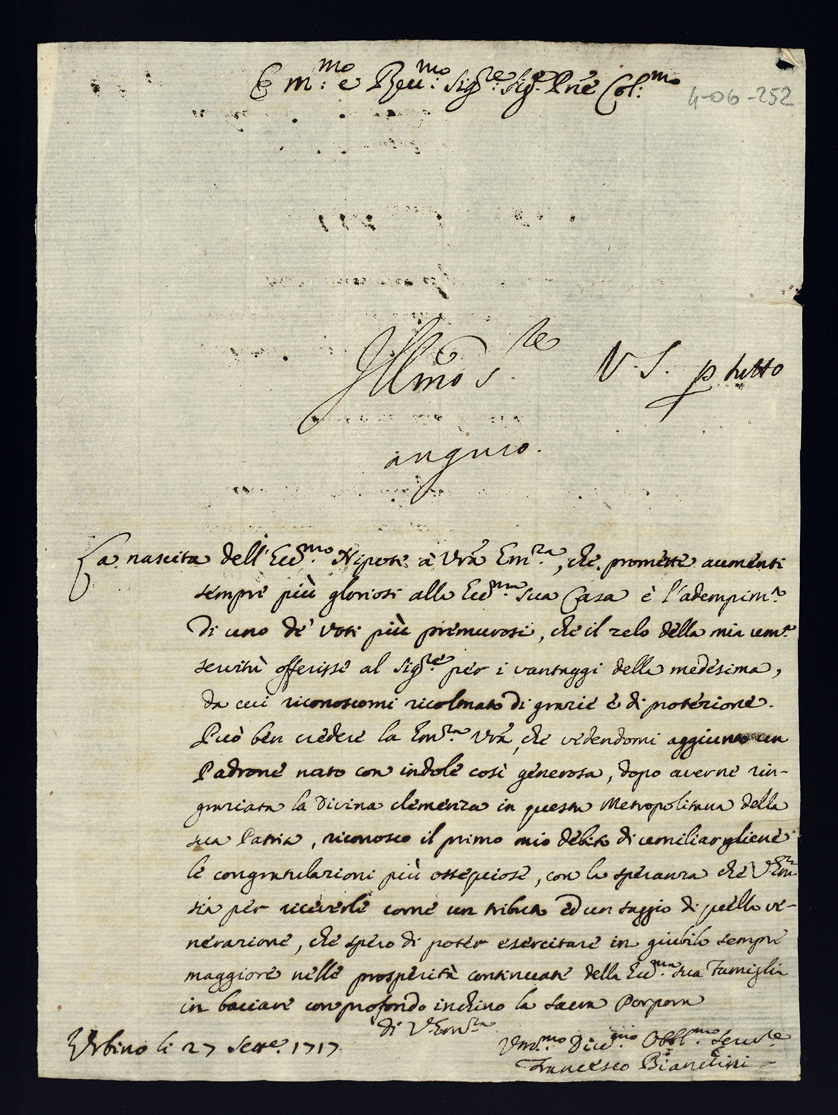 Em:mo e Reu:mo Sig:re Sig:re Pne Col:mo
4-06-252
Illmo S.re V. S. p tutto
anguro.
La nascita dell'Ecc:mo Nipote à Vrã Em:za, che promette aumenti
sempre più gloriosi alla Ecc:ma sua Casa è l'adempim:to
di uno de' voti più premurosi, che il zelo della mia um:e
servitù offerisse al Sig:re per i vantaggi della medesima,
da cui riconoscomi ricolmato di grazie e di protezione.
Può ben credere la Em:za Vrã, che vedendomi aggiunto un
Padrone nato con indole così generosa, dopo averne rin-
graziata la Divina clemenza in questa Metropolitana della
sua Patria, riconosco il primo mio debito di umiliargliene
le congratulazioni più ossequiose, con la speranza che V Em:za
sia per riceverle come un tributo ed un saggio di quella ve-
nerazione, che spero di poter esercitare in giubilo sempre
maggiore nelle prosperità continuate della Ecc:ma sua Famiglia
in baciare con profondo inchino la sacra Porpora
di V Em:za
Urbino li 27 Sett:e 1717.
Um:mo Div:mo Obbl:mo Serv:re
Francesco Bianchini